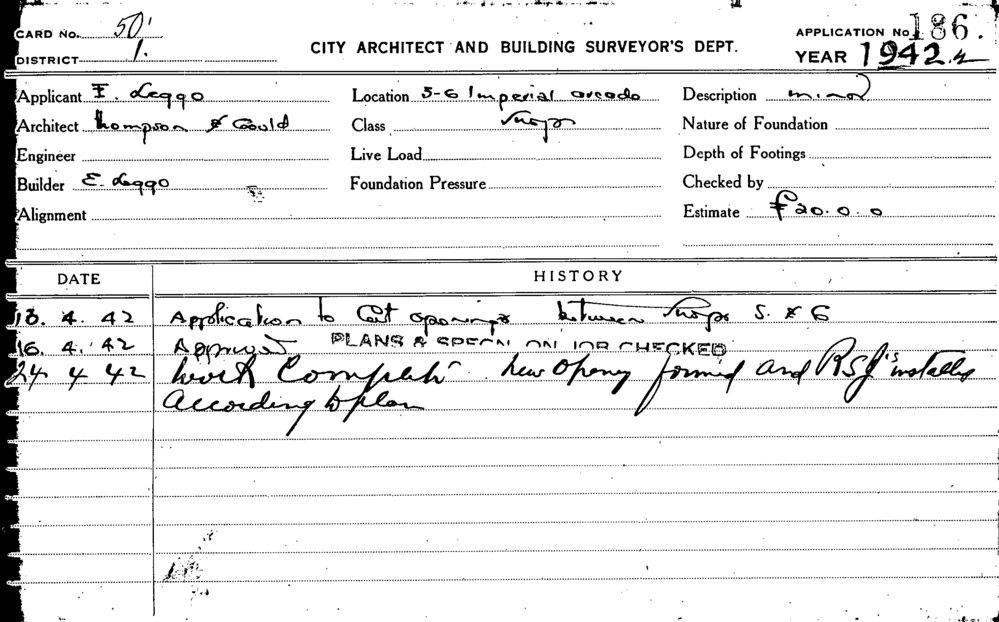 CARD No. 50'
DISTRICT 1.
CITY ARCHITECT AND BUILDING SURVEYOR'S DEPT.
APPLICATION No 186.
YEAR 1942.
Applicant E. Leggo
Location 5-6 Imperial arcade
Description minor
Architect Thompson & Gould
Class Shops
Nature of Foundation
Engineer
Live Load
Depth of Footings
Builder E. Leggo
Foundation Pressure
Checked by
Alignment
Estimate £20.0.0
DATE
HISTORY
13. 4. 42 Application to Cut openings between Shops 5. & 6
16. 4. 42 Approved PLANS & SPECN ON JOB CHECKED
24 4 42 Work Complete New Opening formed and RSJ's installed
According to plan